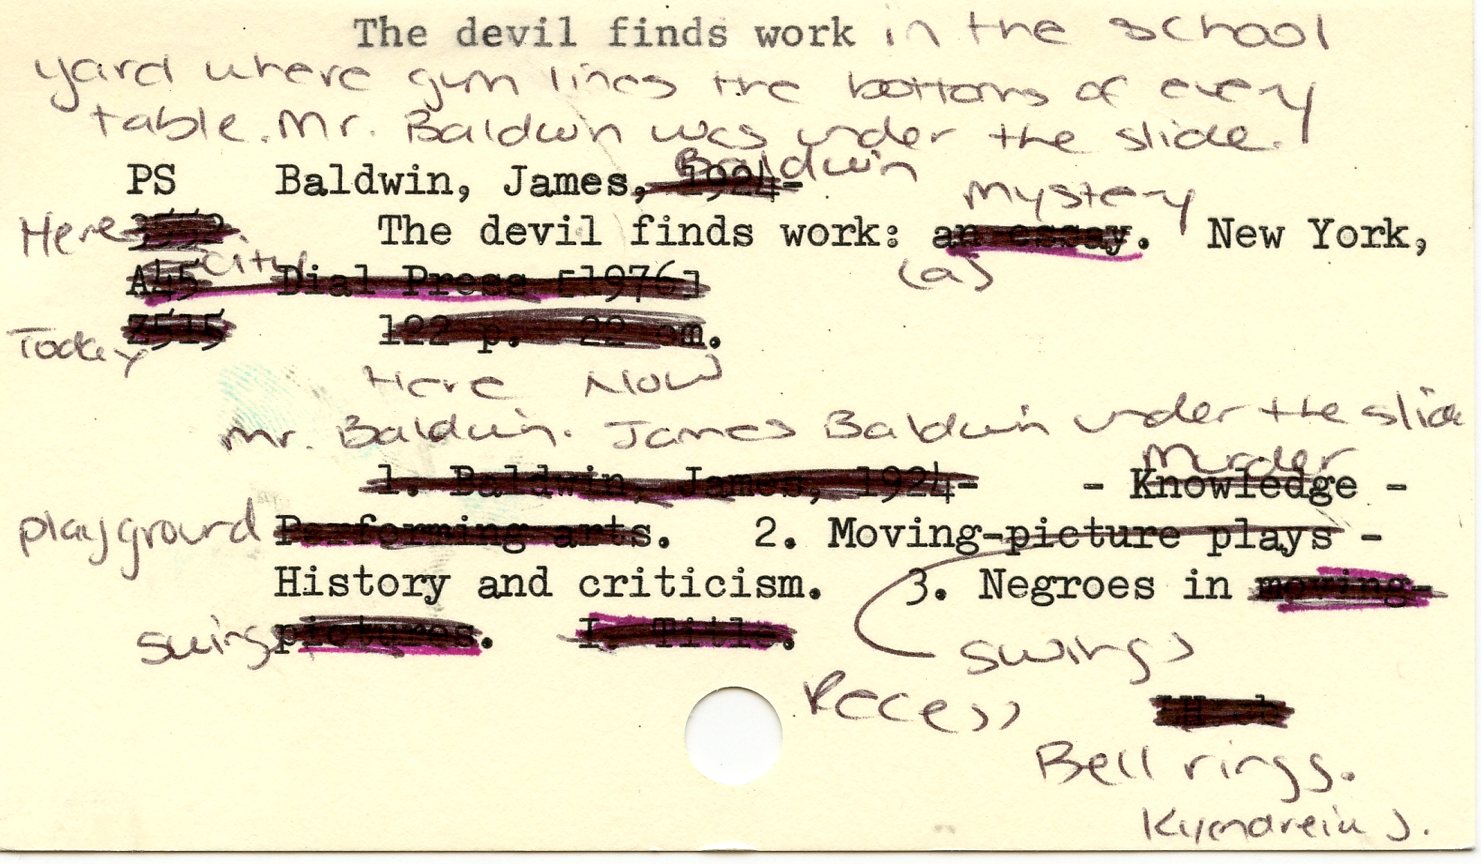 The devil finds work in the school
yard where gum lines the bottoms of every
table. Mr. Baldwin was under the slide.
Baldwin
PS Baldwin, James, 1924-
mystery
Here The devil finds work: an essay. New York,
city (a)
A45 Dial Press [1976]
Today Z515 122 p. 22 cm.
Here Now
Mr. Baldwin. James Baldwin under the slide
Murder
1. Baldwin, James, 1924- - Knowledge -
playground Performing arts. 2. Moving-picture plays -
History and criticism. 3. Negroes in moving-
swings pictures. I. Title. swings
Recess
Bell rings.